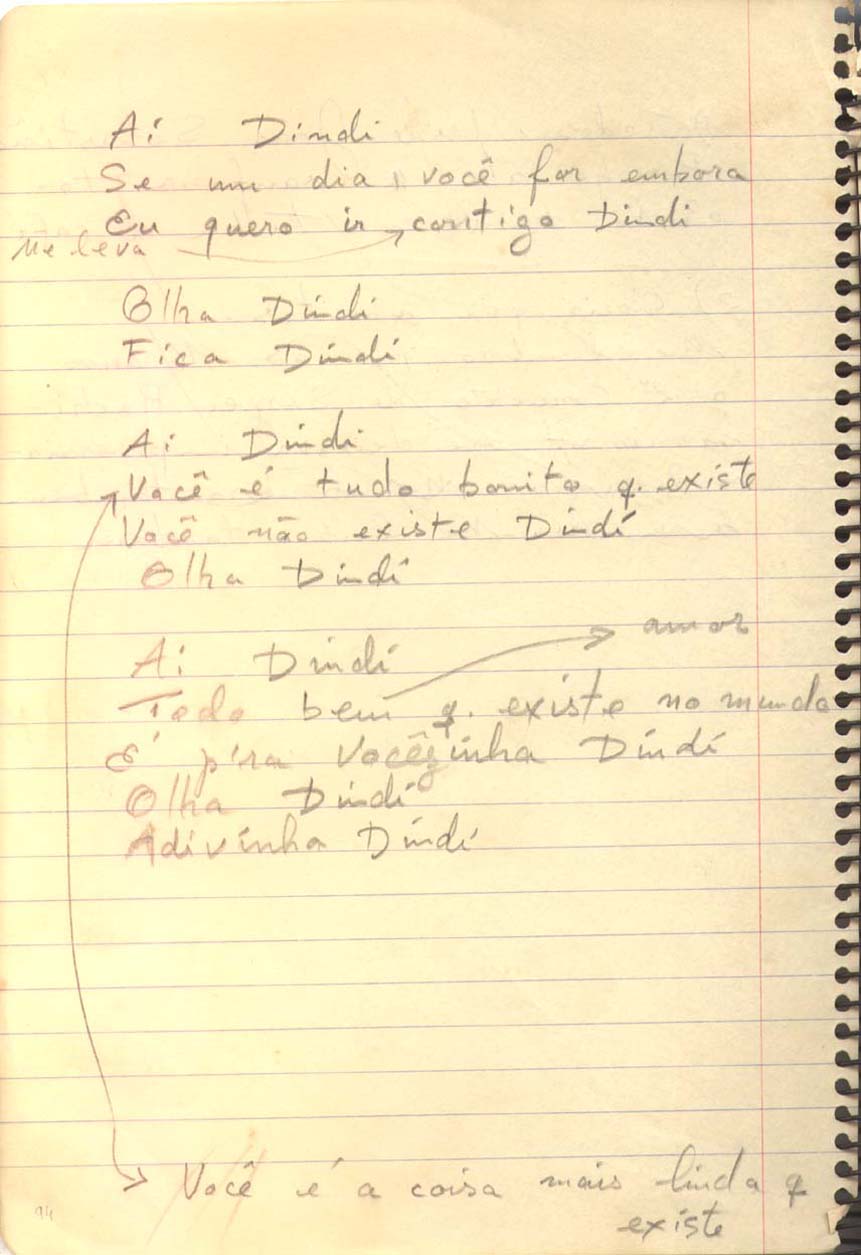 Ai Dindi
Se um dia, você for embora
Eu quero ir contigo Dindi
Me leva
Olha Dindi
Fica Dindi
Ai Dindi
Você é tudo bonito q. existe
Você não existe Dindi
Olha Dindi
amor
Ai Dindi
Todo bem q. existe no mundo
É p'ra Vocêzinha Dindi
Olha Dindi
Adivinha Dindi
Você é a coisa mais linda q
existe
94